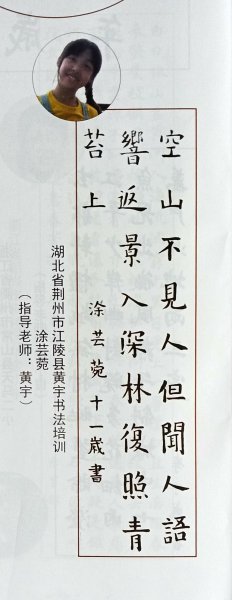 空山不見人但聞人語
響返景入深林復照青
苔上
涂芸菀十一歲書
湖北省荆州市江陵县黄宇书法培训
涂芸菀
（指导老师：黄宇）